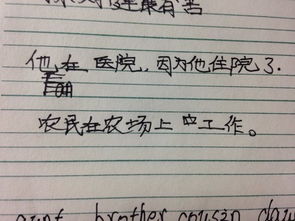 最有害
他在医院,因为他住院了.
农民在农场上工作。
aunt brother cousin